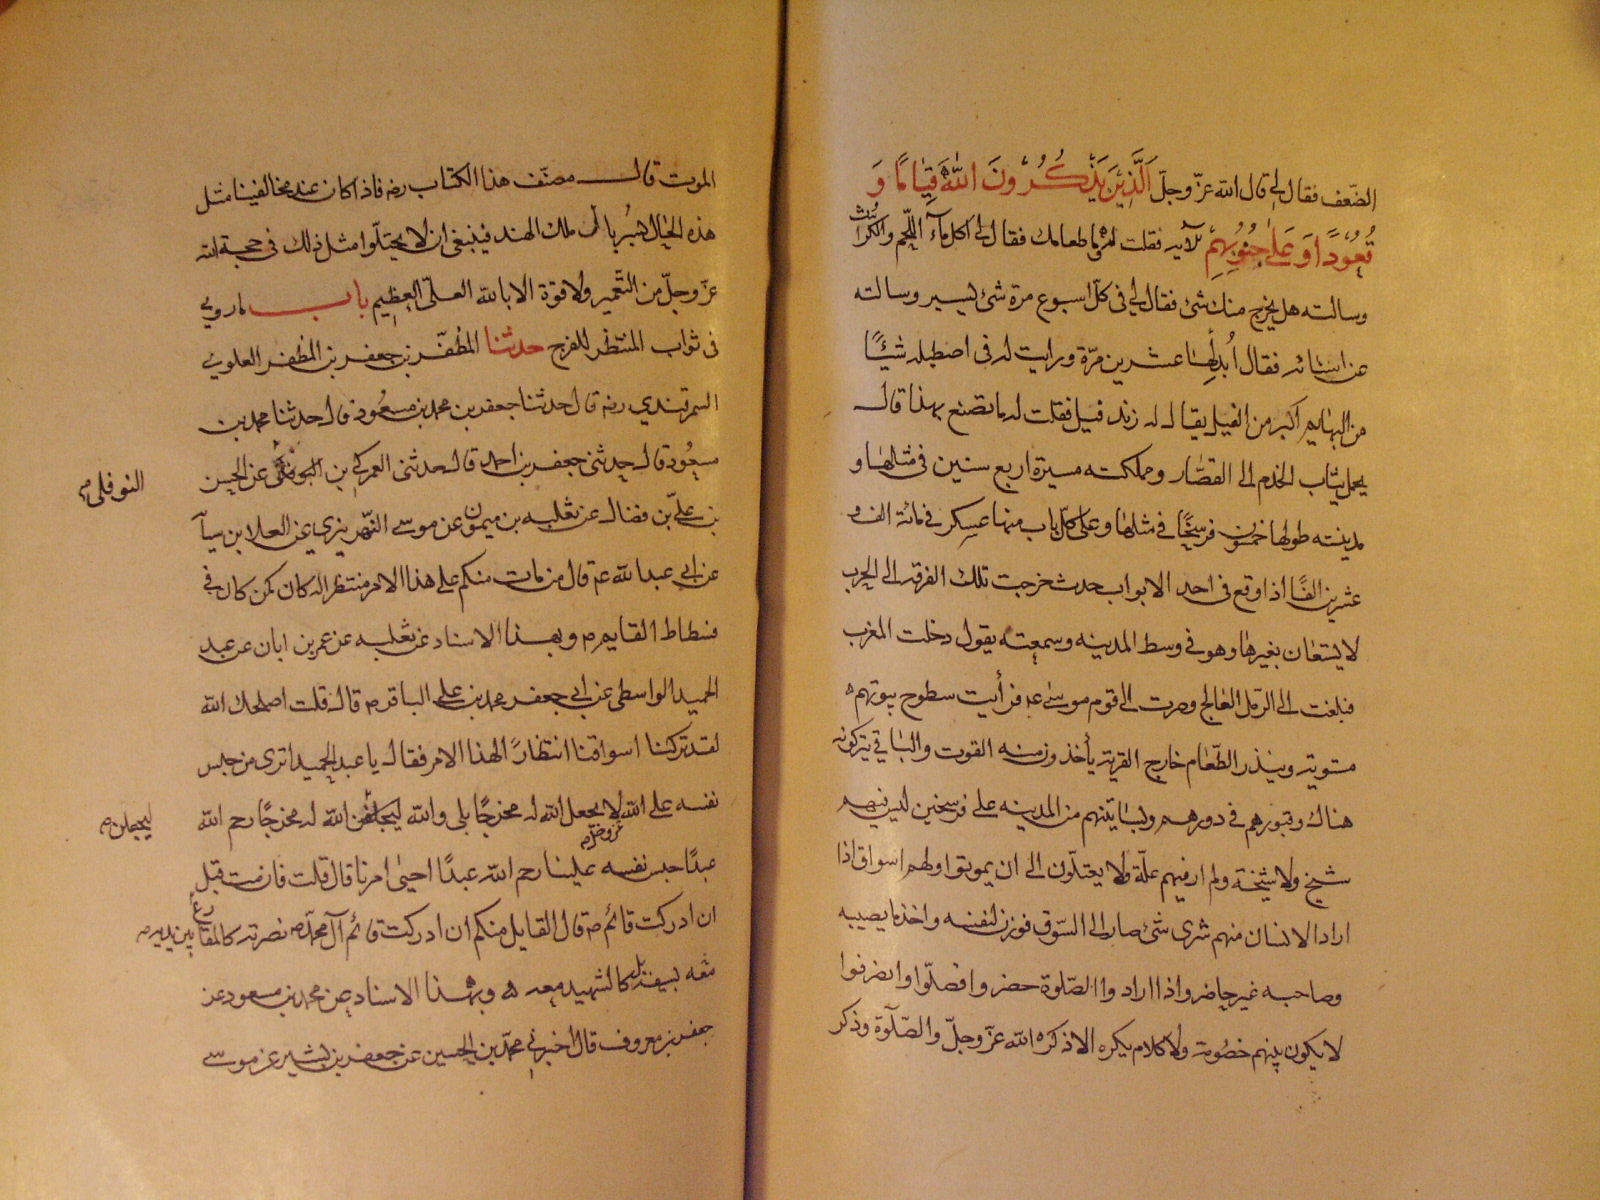 الضّعف فقال لي قال الله عزّ وجلّ اَلَّذِينَ يَذْكُرُونَ اللهَ قِيَامًا وَ
قُعُودًا وَ عَلى جُنُوبِهِمْ الآيه فقلت له ما طعامك فقال لي آكل ماء اللّحم والكرّاث
وسالته هل يخرج منك شئ فقال لي في كلّ اسبوع مرة شئ يسير وسالته
عن اسنانه فقال أبدلتها عشرين مرّة ورايت له في اصطبله شيئًا
من البهايم اكبر من الفيل يقال له زنده فيل فقلت له ما تصنع بهذا قال
يحمل ثياب الخدم الى القصّار ومملكته مسيرة اربع سنين في مثلها و
مدينته طولها خمسون فرسخًا في مثلها وعلى كل باب منها عسكر في مائة الف و
عشرين الفًا اذا وقع في احد الابواب حدث خرجت تلك الفرقه الى الحرب
لا يستعان بغيرها وهو في وسط المدينه وسمعته يقول دخلت المغرب
فبلغت الى الرّمل العالج وصرت الى قوم موسى عم فرأيت سطوح بيوتهم
مستويه وبيذر الطّعام خارج القرية يأخذون منه القوت والباقي يتركونه
هناك وقبورهم في دورهم وبساتينهم من المدينه على فرسخين ليس فيهم
شيخ ولا شيخة ولم ار فيهم علّة ولا يعتلّون الى ان يموتوا ولهم اسواق اذا
اراد الانسان منهم شرى شئ صار الى السّوق فوزن لنفسه واخذ ما يصيبه
وصاحبه غير حاضر واذا ارادوا الصّلوة حضروا فصلّوا وانصرفوا
لا يكون بينهم خصومة ولا كلام يكره الا ذكره الله عزّ وجلّ والصّلوة وذكر
الموت قال مصنّف هذا الكتاب رضه فاذا كان عند مخالفينا مثل
هذه الحال لسربا تك ملك الهند فينبغي ان لا يحيلوا مثل ذلك في حجة الله
عزّ وجلّ من التّعمير ولا قوة الا بالله العلىّ العظيم باب ما روي
في ثواب المنتظر للفرج حدثنا المظفّر بن جعفر بن المظفر العلوي
السمرقندي رضه قال حدثنا جعفر بن محمد بن مسعود قال حدثنا محمد بن
مسعود قال حدثني جعفر بن احمد قال حدثني العمركي بن البوفكي عن الحسن
النوفلي
بن علىّ بن فضال عن ثعلبه بن ميمون عن موسى النّميري عن العلا بن سيا
عن ابي عبد الله عم قال من مات منكم على هذا الامر منتظرا له كان كمن كان في
فسطاط القايم م وبهذا الاسناد عن ثعلبه عن عمر بن ابان عن عبد
الحميد الواسطي عن ابي جعفر محمد بن علي الباقر م قال قلت اصلحك الله
لقد تركنا اسواقنا انتظارًا لهذا الامر فقال يا عبد الحميد اترى من حبس
نفسه على الله عزوجل لا يجعل الله له مخرجًا بلى والله ليجعلن الله له مخرجًا رحم الله
ليجعلن
عبدًا حبس نفسه علينا رحم الله عبدًا احيى امرنا قال قلت فان مت قبل
ان ادركت قائم م قال القايل منكم ان ادركت قائم آل محمّد نصرته كالمقارع بين يديه
معه بسيفه بل كالشهيد معه وبهذا الاسناد عن محمد بن مسعود عن
جعفر بن معروف قال اخبرني محمّد بن الحسين عن جعفر بن بشير عن موسى